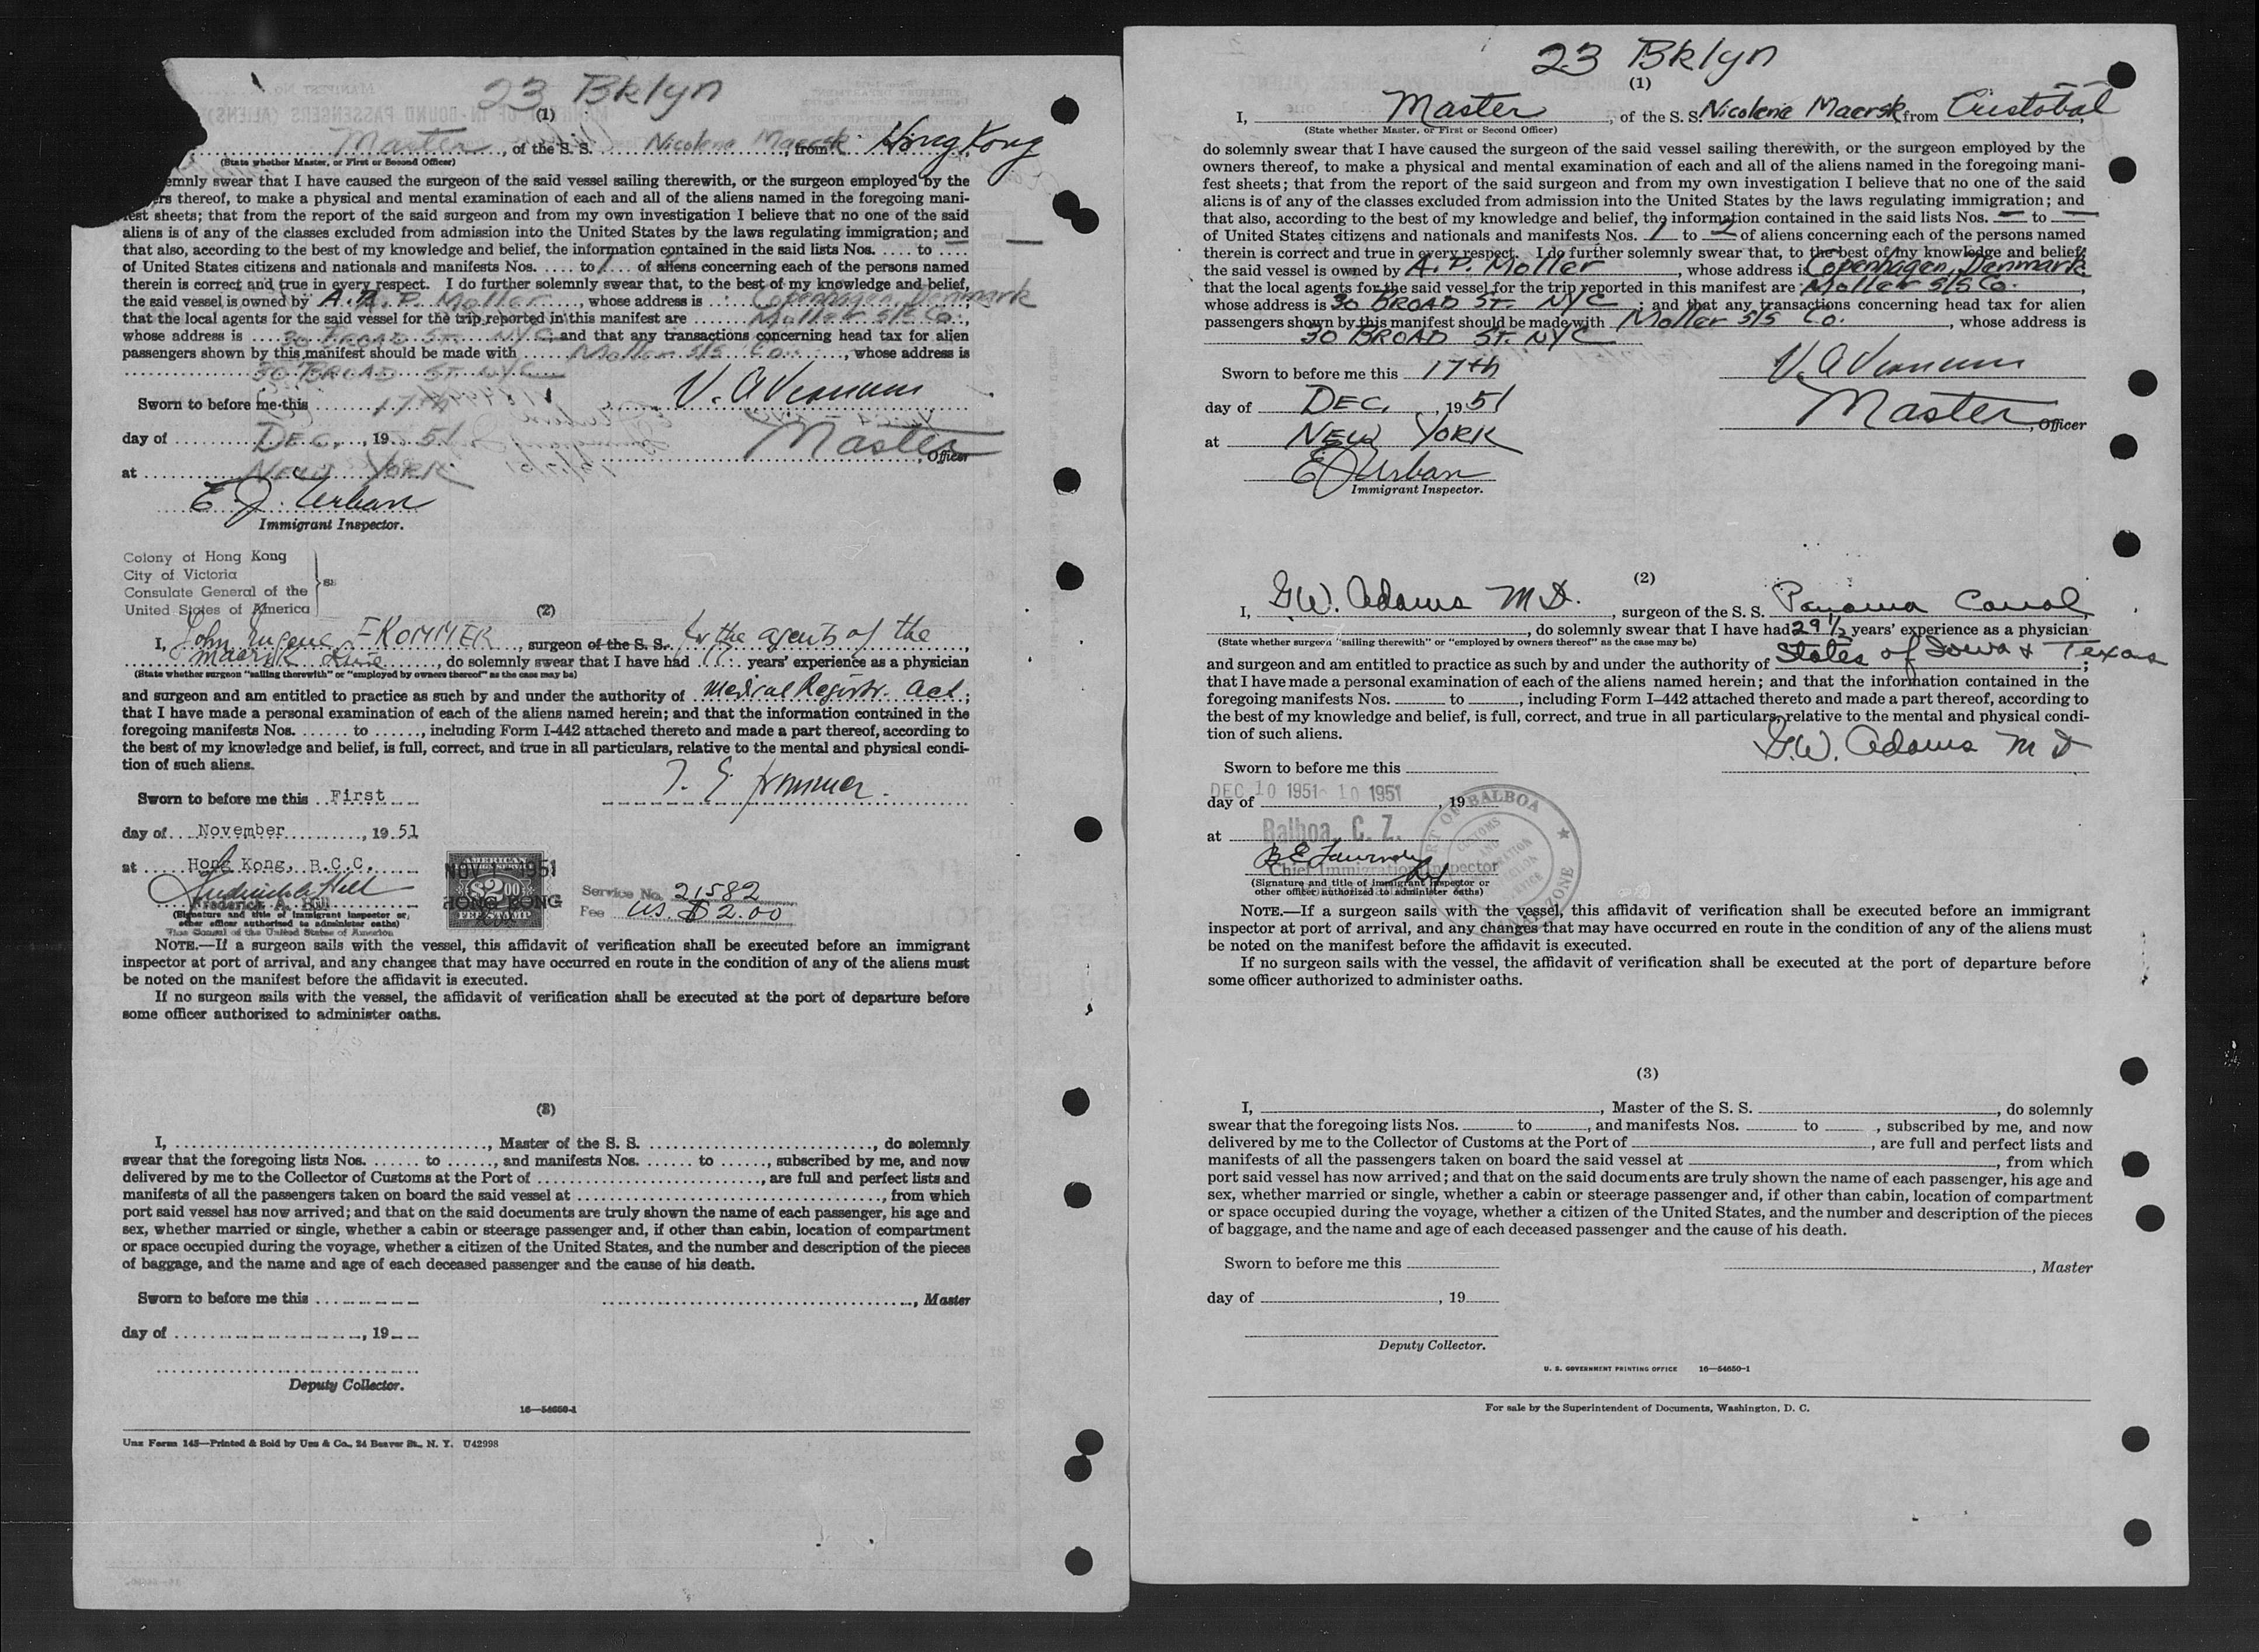 23 Bklyn
(1)
Master, of the S. S. Nicolene Maersk, from Hong Kong,
(State whether Master, or First or Second Officer)
emnly swear that I have caused the surgeon of the said vessel sailing therewith, or the surgeon employed by the
ers thereof, to make a physical and mental examination of each and all of the aliens named in the foregoing mani-
fest sheets; that from the report of the said surgeon and from my own investigation I believe that no one of the said
aliens is of any of the classes excluded from admission into the United States by the laws regulating immigration; and
that also, according to the best of my knowledge and belief, the information contained in the said lists Nos. — to —
of United States citizens and nationals and manifests Nos. .... to 1 of aliens concerning each of the persons named
therein is correct and true in every respect. I do further solemnly swear that, to the best of my knowledge and belief,
the said vessel is owned by A. P. Moller, whose address is Copenhagen, Denmark
that the local agents for the said vessel for the trip reported in this manifest are Moller S/S Co.,
whose address is 30 BROAD ST. NYC; and that any transactions concerning head tax for alien
passengers shown by this manifest should be made with Moller S/S Co., whose address is
30 BROAD ST. NYC
Sworn to before me this 17th
day of DEC., 1951
Master, Officer
at NEW YORK
E. J. Urban
Immigrant Inspector.
Colony of Hong Kong
City of Victoria
Consulate General of the
United States of America } ss
(2)
I, John Eugene, surgeon of the S. S. for the agents of the
Maersk Line, do solemnly swear that I have had 11 years' experience as a physician
(State whether surgeon "sailing therewith" or "employed by owners thereof" as the case may be)
and surgeon and am entitled to practice as such by and under the authority of Medical Registr. Act;
that I have made a personal examination of each of the aliens named herein; and that the information contained in the
foregoing manifests Nos. ...... to ......, including Form I-442 attached thereto and made a part thereof, according to
the best of my knowledge and belief, is full, correct, and true in all particulars, relative to the mental and physical condi-
tion of such aliens.
Sworn to before me this First
day of November, 1951
at Hong Kong, B.C.C.
AMERICAN FOREIGN SERVICE $2.00 FEE STAMP
NOV 1 1951
HONG KONG
Service No. 21582
Fee US. $2.00
Frederick A. Hill
(Signature and title of immigrant inspector or
other officer authorized to administer oaths)
Vice Consul of the United States of America
NOTE.—If a surgeon sails with the vessel, this affidavit of verification shall be executed before an immigrant
inspector at port of arrival, and any changes that may have occurred en route in the condition of any of the aliens must
be noted on the manifest before the affidavit is executed.
If no surgeon sails with the vessel, the affidavit of verification shall be executed at the port of departure before
some officer authorized to administer oaths.
(3)
I, ........, Master of the S. S. ........, do solemnly
swear that the foregoing lists Nos. ...... to ......, and manifests Nos. ...... to ......, subscribed by me, and now
delivered by me to the Collector of Customs at the Port of ........, are full and perfect lists and
manifests of all the passengers taken on board the said vessel at ........, from which
port said vessel has now arrived; and that on the said documents are truly shown the name of each passenger, his age and
sex, whether married or single, whether a cabin or steerage passenger and, if other than cabin, location of compartment
or space occupied during the voyage, whether a citizen of the United States, and the number and description of the pieces
of baggage, and the name and age of each deceased passenger and the cause of his death.
Sworn to before me this ........
........, Master
day of ........, 19....
Deputy Collector.
16—54650-1
Unz Form 145—Printed & Sold by Unz & Co., 24 Beaver St., N. Y. U42998
23 Bklyn
(1)
I, Master, of the S. S. Nicolene Maersk from Cristobal,
(State whether Master, or First or Second Officer)
do solemnly swear that I have caused the surgeon of the said vessel sailing therewith, or the surgeon employed by the
owners thereof, to make a physical and mental examination of each and all of the aliens named in the foregoing mani-
fest sheets; that from the report of the said surgeon and from my own investigation I believe that no one of the said
aliens is of any of the classes excluded from admission into the United States by the laws regulating immigration; and
that also, according to the best of my knowledge and belief, the information contained in the said lists Nos. — to —
of United States citizens and nationals and manifests Nos. 1 to 2 of aliens concerning each of the persons named
therein is correct and true in every respect. I do further solemnly swear that, to the best of my knowledge and belief,
the said vessel is owned by A. P. Moller, whose address is Copenhagen, Denmark
that the local agents for the said vessel for the trip reported in this manifest are Moller S/S Co.,
whose address is 30 BROAD ST. NYC; and that any transactions concerning head tax for alien
passengers shown by this manifest should be made with Moller S/S Co., whose address is
30 BROAD ST. NYC
Sworn to before me this 17th
day of DEC., 1951
Master, Officer
at NEW YORK
E J Urban
Immigrant Inspector.
(2)
I, G.W. Adams M D., surgeon of the S. S. Panama Canal,
, do solemnly swear that I have had 29 1/2 years' experience as a physician
(State whether surgeon "sailing therewith" or "employed by owners thereof" as the case may be)
and surgeon and am entitled to practice as such by and under the authority of States of Iowa & Texas;
that I have made a personal examination of each of the aliens named herein; and that the information contained in the
foregoing manifests Nos. ____ to ____, including Form I-442 attached thereto and made a part thereof, according to
the best of my knowledge and belief, is full, correct, and true in all particulars, relative to the mental and physical condi-
tion of such aliens.
G.W. Adams M D
Sworn to before me this ____
DEC 10 1951 10 1951
day of ____, 19____
at Balboa, C. Z.
PORT OF BALBOA CANAL ZONE CUSTOMS AND IMMIGRATION SERVICE
Chief Immigration Inspector
(Signature and title of immigrant inspector or
other officer authorized to administer oaths)
NOTE.—If a surgeon sails with the vessel, this affidavit of verification shall be executed before an immigrant
inspector at port of arrival, and any changes that may have occurred en route in the condition of any of the aliens must
be noted on the manifest before the affidavit is executed.
If no surgeon sails with the vessel, the affidavit of verification shall be executed at the port of departure before
some officer authorized to administer oaths.
(3)
I, ____, Master of the S. S. ____, do solemnly
swear that the foregoing lists Nos. ____ to ____, and manifests Nos. ____ to ____, subscribed by me, and now
delivered by me to the Collector of Customs at the Port of ____, are full and perfect lists and
manifests of all the passengers taken on board the said vessel at ____, from which
port said vessel has now arrived; and that on the said documents are truly shown the name of each passenger, his age and
sex, whether married or single, whether a cabin or steerage passenger and, if other than cabin, location of compartment
or space occupied during the voyage, whether a citizen of the United States, and the number and description of the pieces
of baggage, and the name and age of each deceased passenger and the cause of his death.
Sworn to before me this ____
____, Master
day of ____, 19____
Deputy Collector.
U. S. GOVERNMENT PRINTING OFFICE 16—54650-1
For sale by the Superintendent of Documents, Washington, D. C.